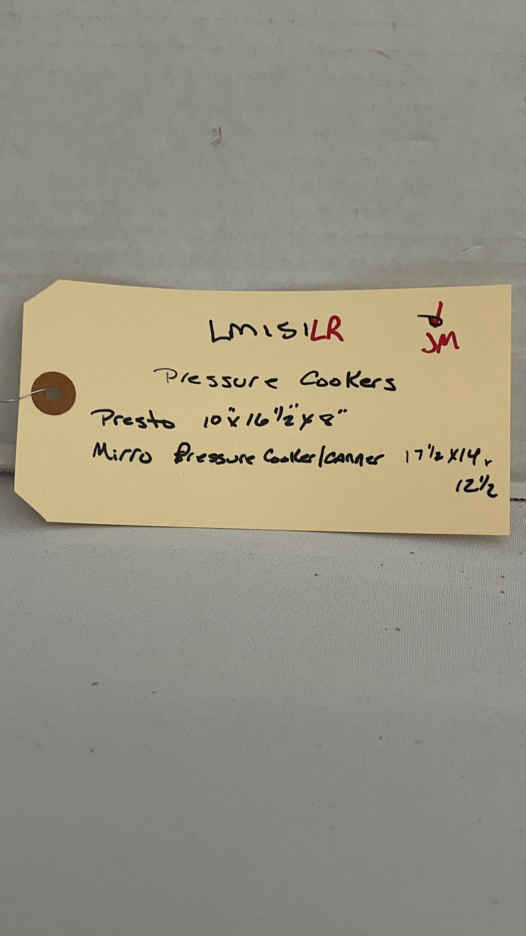 LM151LR
JM
Pressure Cookers
Presto 10" x 16 1/2" x 8"
Mirro Pressure Cooker/canner 17 1/2 x 14 x
12 1/2